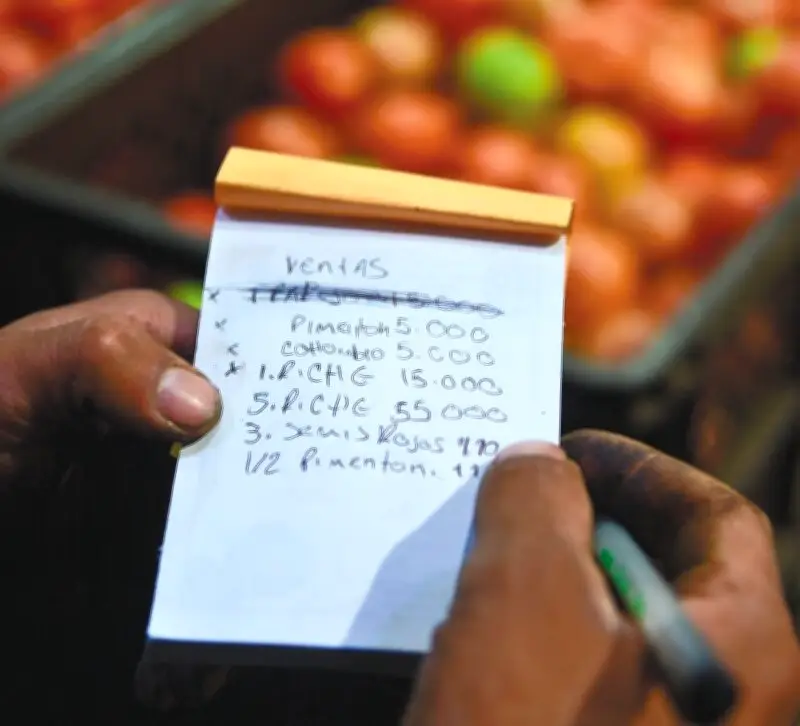 Ventas
x
x Pimenton 5.000
x 5.000
x 1. R.CHG 15.000
5. R.CHG 55000
3. Semis Rojas 110
1/2 Pimenton. 11